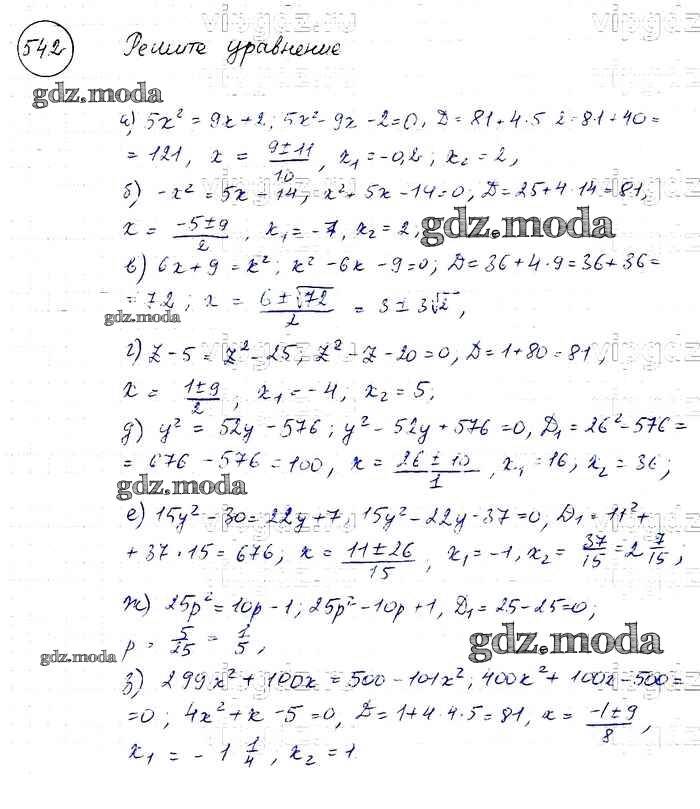 542 Решите уравнение
gdz.moda
а) 5x² = 9x+2; 5x²-9x-2=0, D=81+4·5·2=81+40=
= 121, x = (9±11)/10, x₁=-0,2; x₂=2,
б) -x² = 5x-14, x²+5x-14=0, D=25+4·14=81,
x = (-5±9)/2, x₁=-7, x₂=2;
gdz.moda
в) 6x+9=x²; x²-6x-9=0; D=36+4·9=36+36=
= 72; x = (6±√72)/2 = 3±3√2,
gdz.moda
г) z-5=z²-25, z²-z-20=0, D=1+80=81,
x = (1±9)/2; x₁=-4, x₂=5;
д) y²=52y-576; y²-52y+576=0, D₁=26²-576=
= 676-576=100, x = (26±10)/1, x₁=16, x₂=36;
gdz.moda
е) 15y²-30=22y+7, 15y²-22y-37=0, D₁=11²+
+37·15=676; x = (11±26)/15, x₁=-1, x₂=37/15=2 7/15,
ж) 25p²=10p-1; 25p²-10p+1, D₁=25-25=0;
p = 5/25 = 1/5,
gdz.moda
gdz.moda
з) 299x²+100x=500-101x², 400x²+100x-500=
=0; 4x²+x-5=0, D=1+4·4·5=81, x = (-1±9)/8,
x₁ = -1 1/4, x₂=1